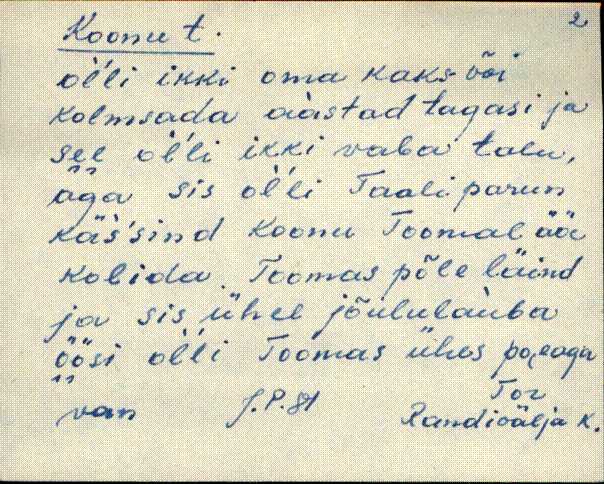 2
Koonu t.
ol'li ikki oma kaks või
kolmsada aàstad tagasi ja
see ol'li ikki vaba talu,
äga sis ol'li Taali parun
käs'sind Koonu Toomal ää
kolida. Toomas põle läind
ja sis ühel jõululauba
öösi ol'li Toomas ühes poeaga
van J.P. St Tor
Randivälja k.